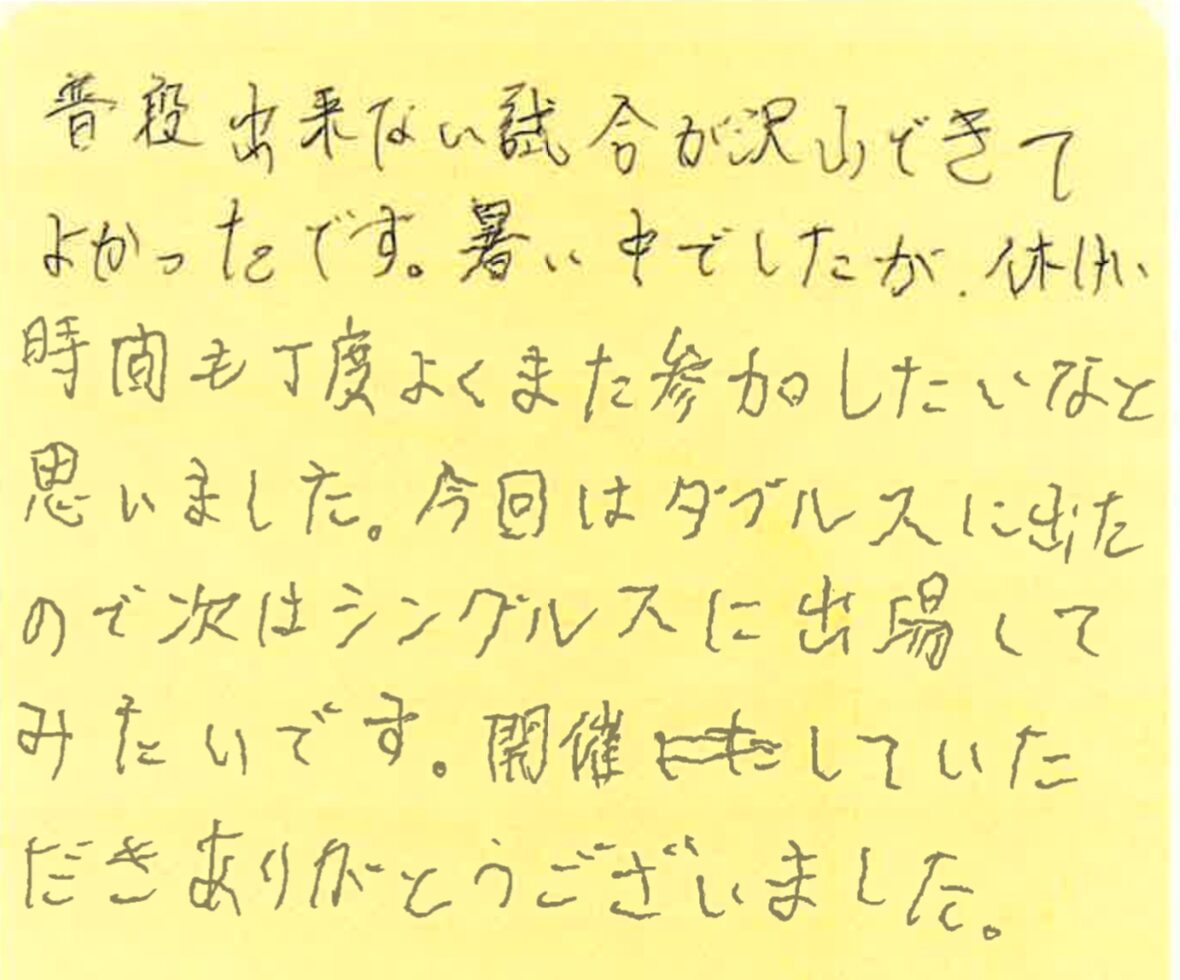 普段出来ない試合が沢山できて
よかったです。暑い中でしたが、休けい
時間も丁度よくまた参加したいなと
思いました。今回はダブルスに出た
ので次はシングルスに出場して
みたいです。開催していた
だきありがとうございました。